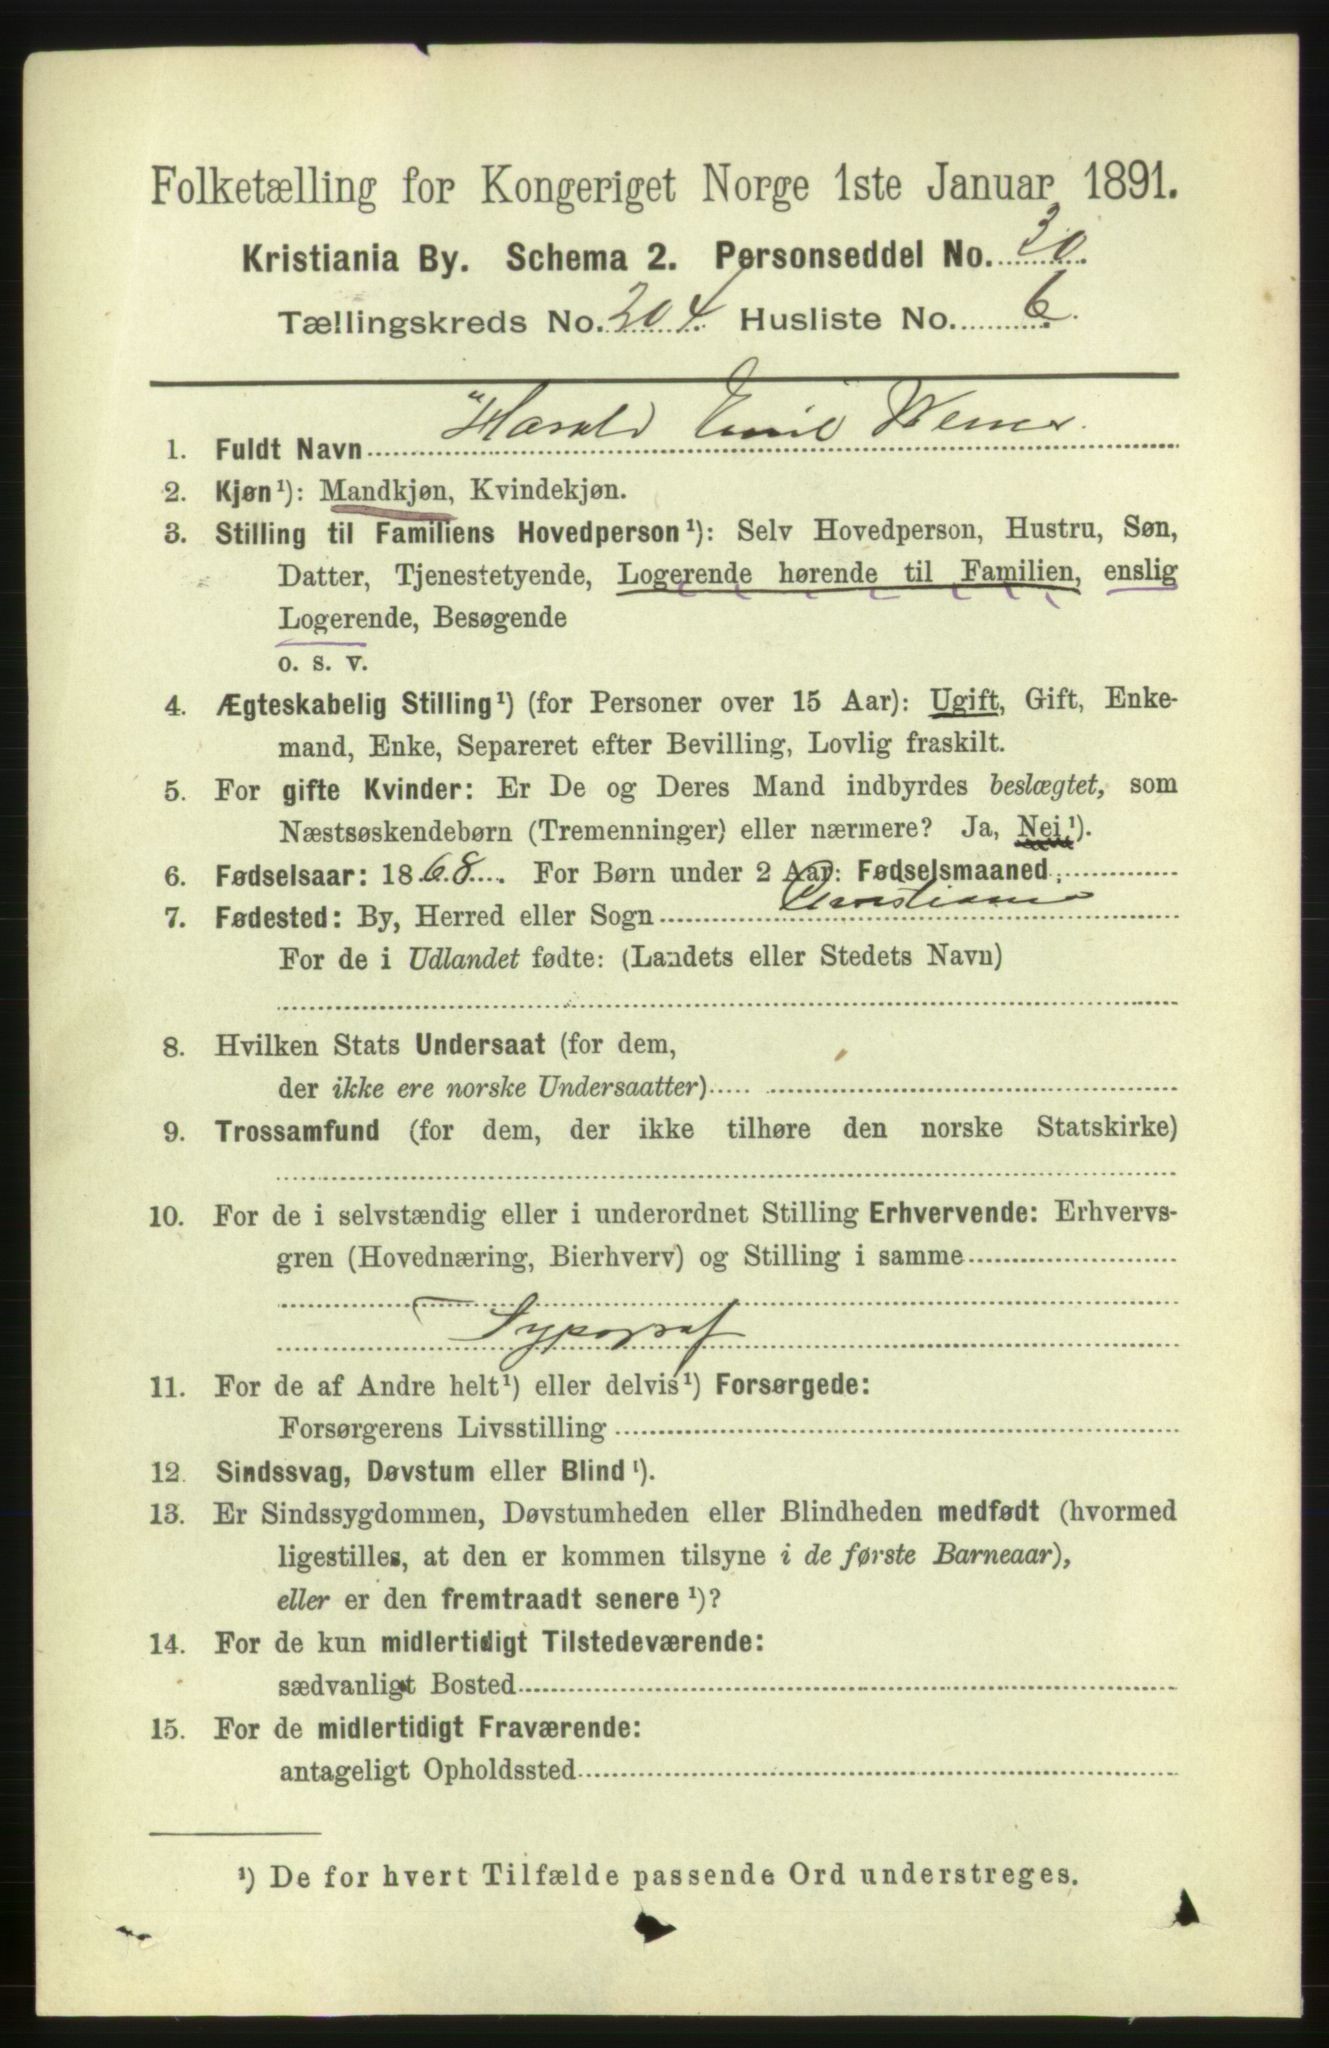 Folketælling for Kongeriget Norge 1ste Januar 1891.
Kristiania By. Schema 2. Personseddel No. 30
Tællingskreds No. 204 Husliste No. 6.
1. Fuldt Navn Harald Emil
2. Kjøn¹): Mandkjøn, Kvindekjøn.
3. Stilling til Familiens Hovedperson¹): Selv Hovedperson, Hustru, Søn,
Datter, Tjenestetyende, Logerende hørende til Familien, enslig
Logerende, Besøgende
o. s. v.
4. Ægteskabelig Stilling¹) (for Personer over 15 Aar): Ugift, Gift, Enke-
mand, Enke, Separeret efter Bevilling, Lovlig fraskilt.
5. For gifte Kvinder: Er De og Deres Mand indbyrdes beslægtet, som
Næstsøskendebørn (Tremenninger) eller nærmere? Ja, Nei ¹).
6. Fødselsaar: 1868. For Børn under 2 Aar: Fødselsmaaned
7. Fødested: By, Herred eller Sogn Christiania
For de i Udlandet fødte: (Landets eller Stedets Navn)
8. Hvilken Stats Undersaat (for dem,
der ikke ere norske Undersaatter)
9. Trossamfund (for dem, der ikke tilhøre den norske Statskirke)
10. For de i selvstændig eller i underordnet Stilling Erhvervende: Erhvervs-
gren (Hovednæring, Bierhverv) og Stilling i samme
Typograf
11. For de af Andre helt¹) eller delvis¹) Forsørgede:
Forsørgerens Livsstilling
12. Sindssvag, Døvstum eller Blind¹).
13. Er Sindssygdommen, Døvstumheden eller Blindheden medfødt (hvormed
ligestilles, at den er kommen tilsyne i de første Barneaar),
eller er den fremtraadt senere ¹)?
14. For de kun midlertidigt Tilstedeværende:
sædvanligt Bosted
15. For de midlertidigt Fraværende:
antageligt Opholdssted
¹) De for hvert Tilfælde passende Ord understreges.